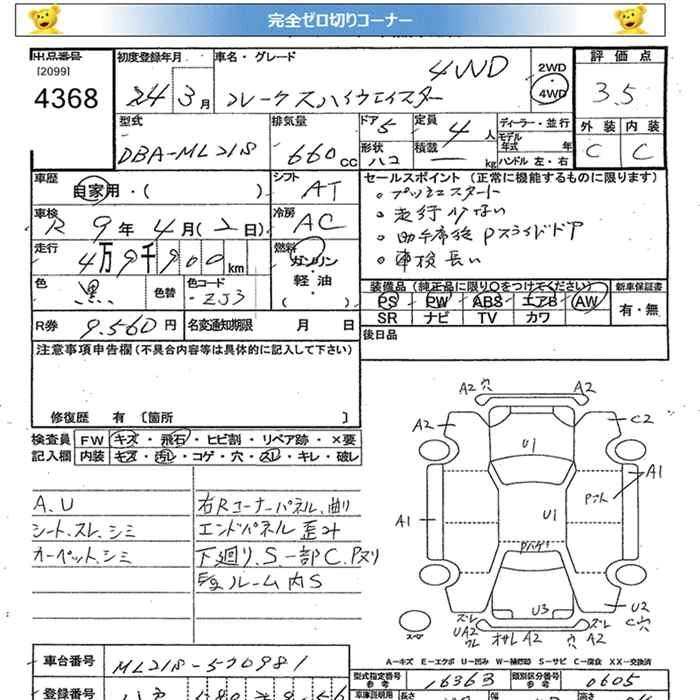 完全ゼロ切りコーナー
出品番号
[2099]
4368
初度登録年月
24年 3月
車名・グレード
パレット SW 4WD
2WD
4WD
評価点
3.5
外装 内装
C C
型式
DBA-ML21S
排気量
660 cc
ドア 5
形状 ハコ
定員 4 人
積載 ― kg
ディーラー・並行
モデル年式 年
ハンドル 左・右
車歴
自家用・( )
シフト
AT
車検
R 9年 4月(2日)
冷房
AC
走行
4万9千900km
燃料
ガソリン・軽油・( )
色
黒
色替
色コード
ZJ3
R券
9.560円
名変通知期限 月 日
セールスポイント (正常に機能するものに限ります)
・プッシュスタート
・走行少ない
・助手席後Pスライドドア
・車検長い
装備品(純正品に限り○をつけてください)
PS PW ABS エアB AW
SR ナビ TV カワ
新車保証書
有・無
後日品
注意事項申告欄(不具合内容等は具体的に記入して下さい)
修復歴 有 〔箇所 〕
検査員記入欄
FW キズ・飛石・ヒビ割・リペア跡・×要
内装 キズ・汚レ・コゲ・穴・スレ・キレ・破レ
A.U
シート.スレ.シミ
カーペット.シミ
右Rコーナーパネル.曲り
エンドパネル歪み
下廻り.S.一部C.Pヌリ
ルーム内S
A2 穴
A2
A2
C2
U1
A1
Pット
A1
U1
U3
U2
スレ
UA2
A2
穴
スレ
C穴
スペア
A…キズ E…エクボ U…凹み W…補修跡 S…サビ C…腐食 XX…交換済
車台番号
ML21S-520981
型式指定番号
16363
類別区分番号
0605
登録番号